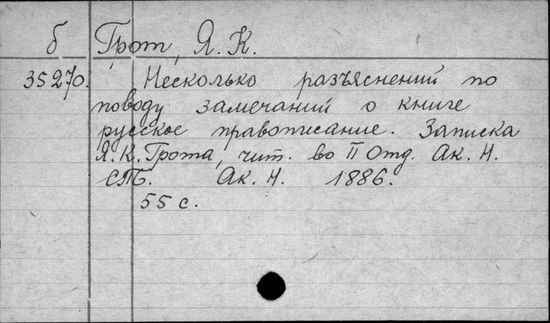 б Грот, Я. К.
35270. Несколько разъяснений по
поводу замечаний о книге
русское правописание. Записка
Я. К. Грота, чит. во II Отд. Ак. Н.
СПб. Ак. Н. 1886.
55 с.